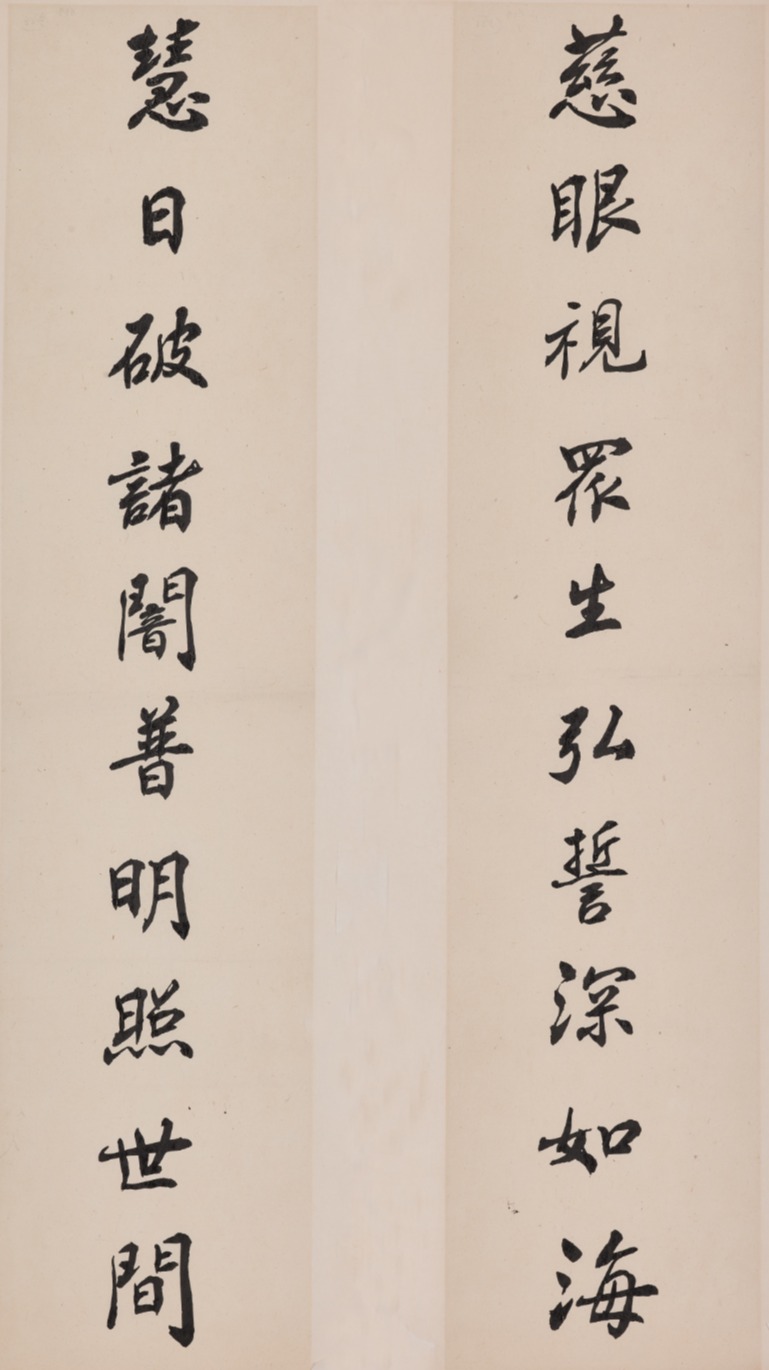 慈眼視眾生弘誓深如海
慧日破諸闇普明照世間